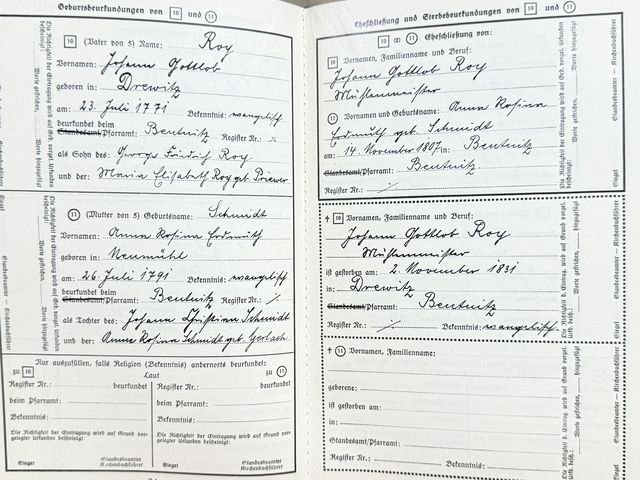 Geburtsbeurkundungen von 10 und 11
10 (Vater von 5) Name: Roy
Vornamen: Johann Gottlob
geboren in: Drewitz
am: 23. Juli 1771 Bekenntnis: evangelisch
beurkundet beim
Standesamt/Pfarramt: Beutnitz Register Nr.: ⁒
als Sohn des: George Friedrich Roy
und der: Maria Elisabeth Roy geb. Priewer
Die Richtigkeit der Eintragung wird auf Grund vorgel. Urkunden bescheinigt:
Worte gestrichen, Worte hinzugefügt
Siegel Standesbeamter – Kirchenbuchführer
11 (Mutter von 5) Geburtsname: Schmidt
Vornamen: Anna Rosina Erdmuth
geboren in: Neumühl
am: 26. Juli 1791 Bekenntnis: evangelisch
beurkundet beim
Standesamt/Pfarramt: Beutnitz Register Nr.: ⁒
als Tochter des: Johann Christian Schmidt
und der: Anna Rosina Schmidt geb. Gerlach
Die Richtigkeit der Eintragung wird auf Grund vorgel. Urkunden bescheinigt:
Worte gestrichen, Worte hinzugefügt
Siegel Standesbeamter – Kirchenbuchführer
Nur auszufüllen, falls Religion (Bekenntnis) anderorts beurkundet:
zu 10 Laut zu 11
Register Nr.: beurkundet Register Nr.: beurkundet
beim Pfarramt: beim Pfarramt:
Bekenntnis: Bekenntnis:
Die Richtigkeit der Eintragung wird auf Grund vorgelegter Urkunden bescheinigt: Die Richtigkeit der Eintragung wird auf Grund vorgelegter Urkunden bescheinigt:
Siegel Standesbeamter Kirchenbuchführer Siegel Standesbeamter Kirchenbuchführer
Eheschließung und Sterbebeurkundungen von 10 und 11
10 ∞ 11 Eheschließung von:
10 Vornamen, Familienname und Beruf:
Johann Gottlob Roy
Mühlenmeister
11 Vornamen und Geburtsname: Anna Rosina
Erdmuth geb. Schmidt
am: 14. November 1807 in: Beutnitz
Standesamt/Pfarramt: Beutnitz
Register Nr.: ⁒
Die Richtigkeit der Eintragung wird auf Grund vorgel. Urkunden bescheinigt:
Worte gestrichen, hinzugefügt
Siegel Standesbeamter – Kirchenbuchführer
† 10 Vornamen, Familienname und Beruf:
Johann Gottlob Roy
Mühlenmeister
ist gestorben am: 2. November 1831
in: Drewitz
Standesamt/Pfarramt: Beutnitz
Register Nr.: ⁒ Bekenntnis: evangelisch
Die Richtigkeit d. Eintrag. wird auf Grund vorgel. Urk. besch.:
Worte gestrichen, hinzugefügt
Siegel Standesbeamter – Kirchenbuchführer
† 11 Vornamen, Familienname:
geborene:
ist gestorben am:
in:
Standesamt/Pfarramt:
Register Nr.: Bekenntnis:
Die Richtigkeit d. Eintrag. wird auf Grund vorgel. Urk. besch.:
Worte gestrichen, hinzugefügt
Siegel Standesbeamter – Kirchenbuchführer